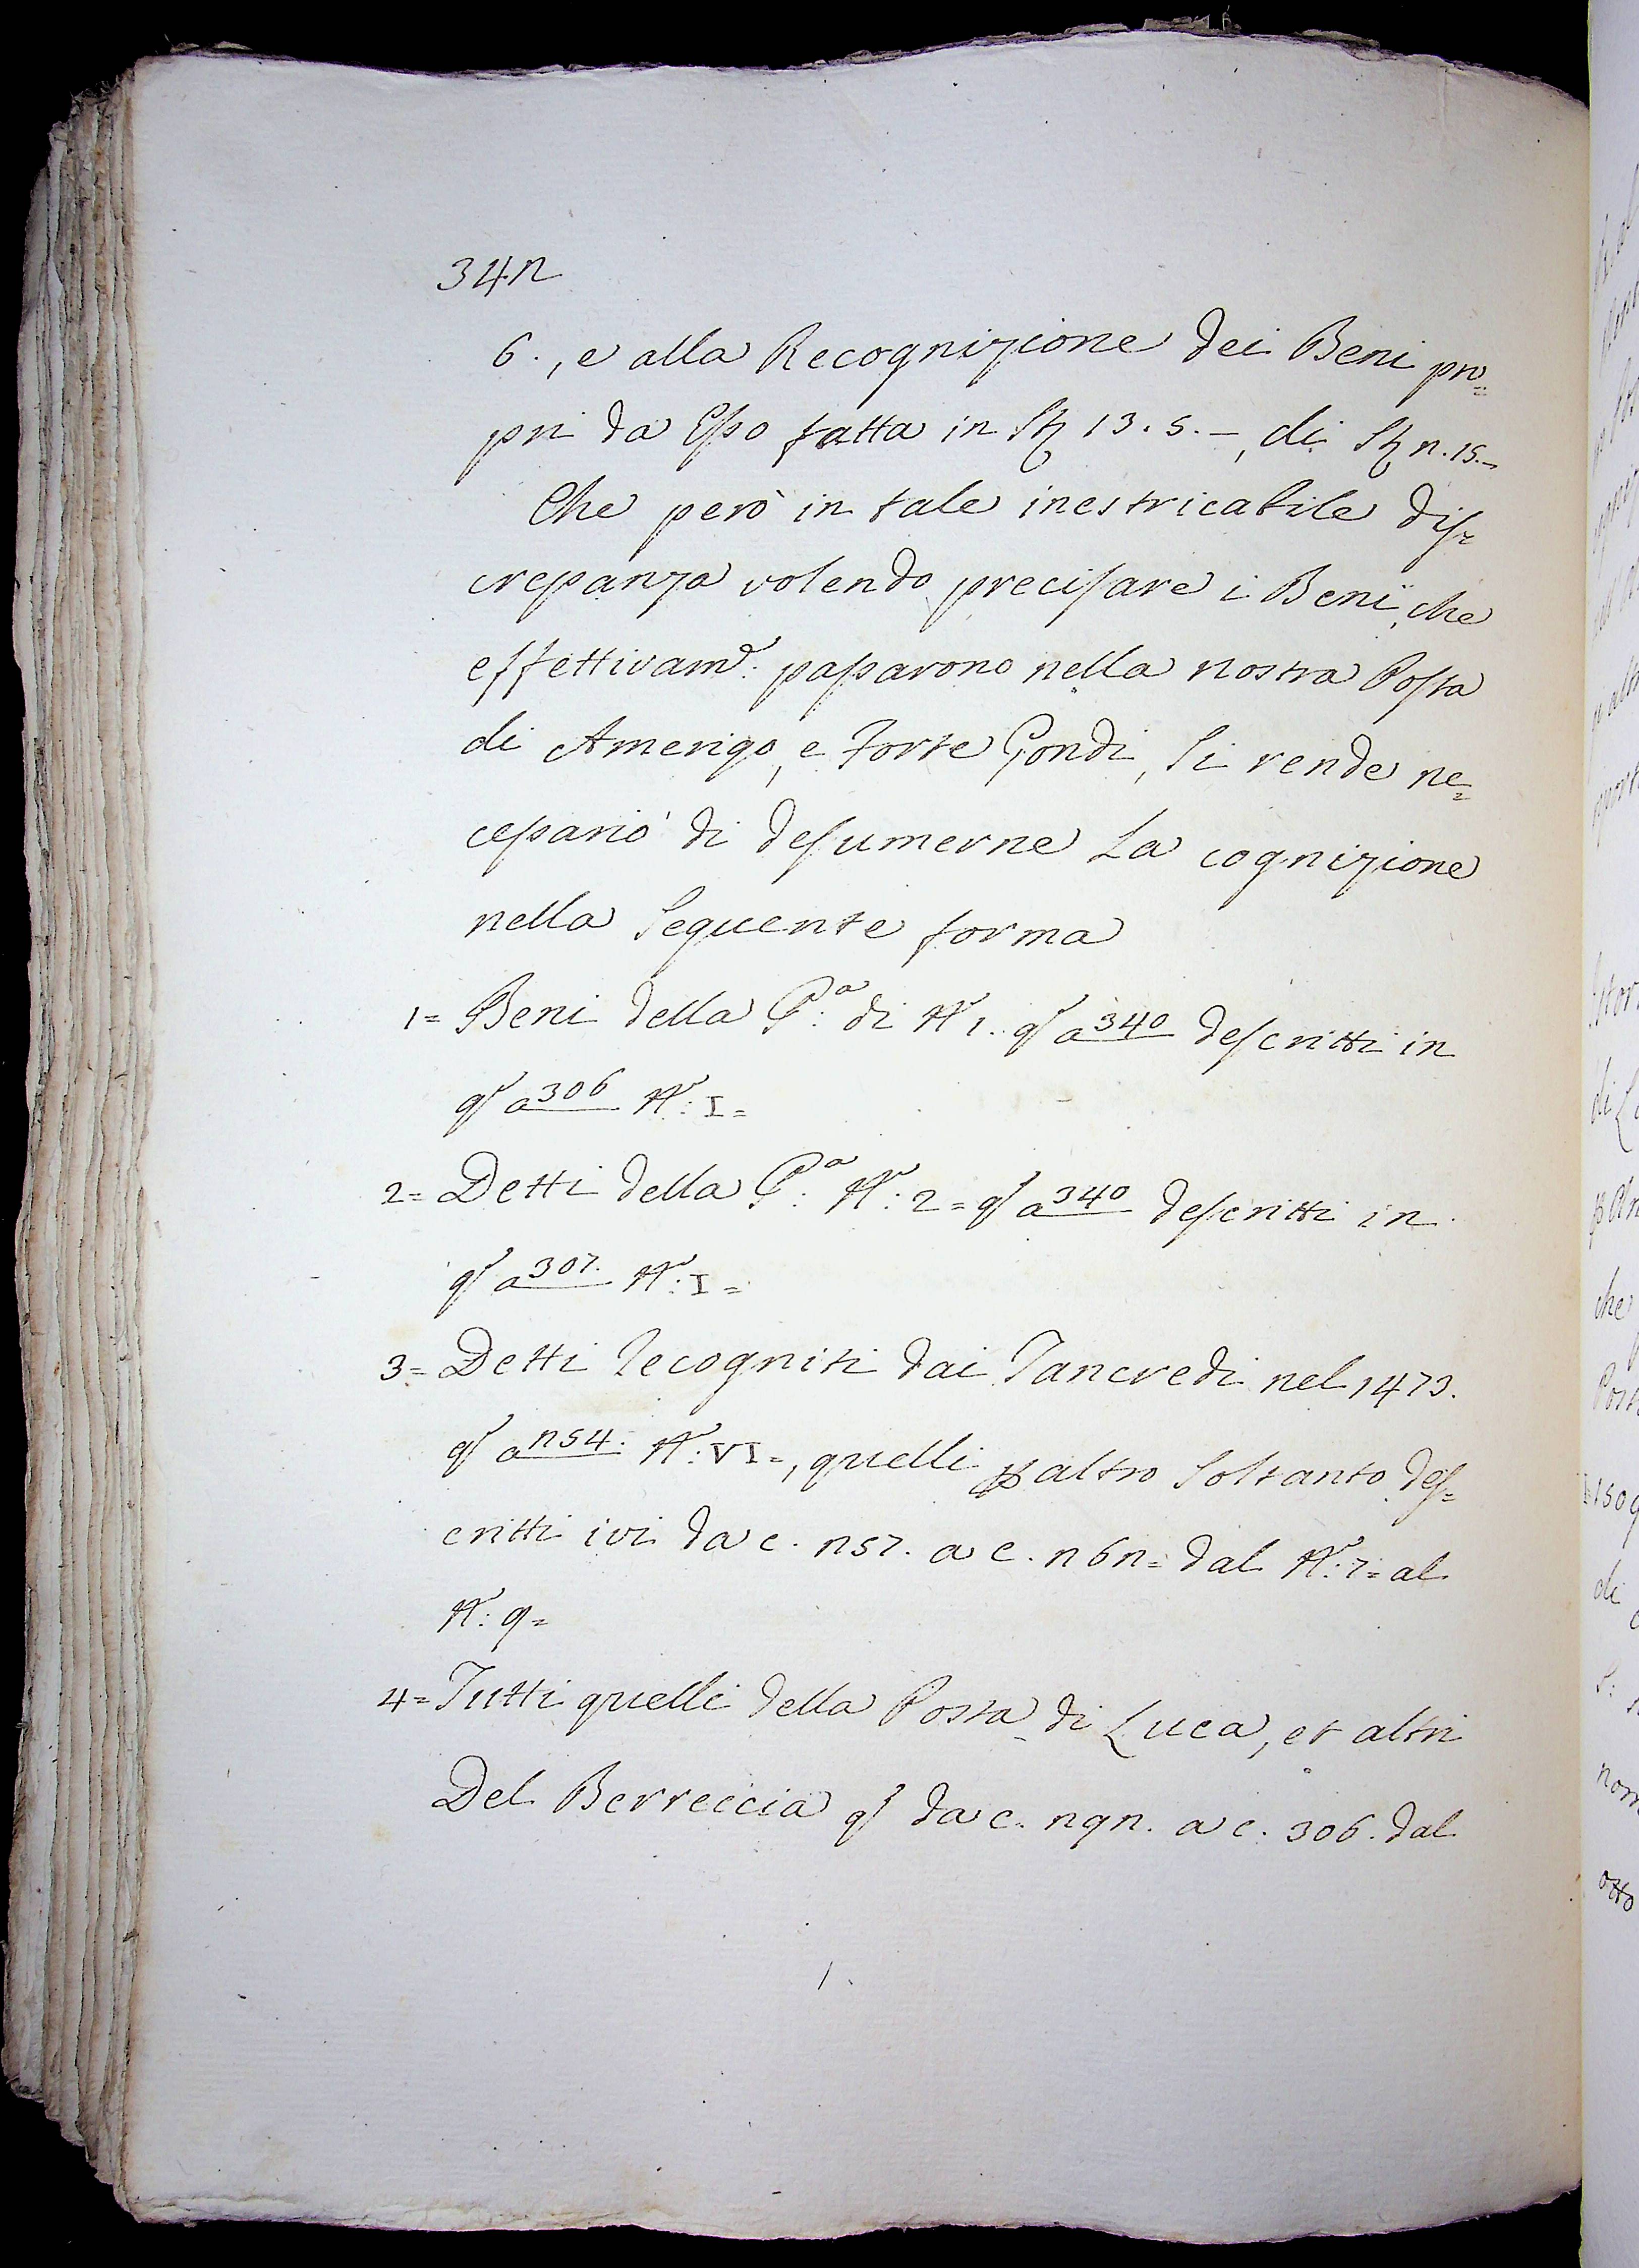 342
6., e alla Recognizione dei Beni pro=
pri da Esso fatta in St 13. 5. –, di St 2. 15. –
Che però in tale inestricabile dis=
crepanza volendo precisare i Beni, che
effettivam.e passarono nella nostra Posta
di Amerigo, e Forte Gondi, Si rende ne=
cessario di desumerne La cognizione
nella Seguente forma
1= Beni della P.a di N 1. q a 340 descritti in
q a 306 N: I=
2= Detti della P.a N: 2= q a 340 descritti in
q a 307. N: I=
3= Detti Recogniti dai Tancredi nel 1473.
q a 254. N: VI=, quelli p altro Soltanto des=
critti ivi da c. 257. a c. 262= dal N: 7= al
N: 9=
4= Tutti quelli della Posta di Luca, et altri
Del Berreccia q da c. 292. a c. 306. dal